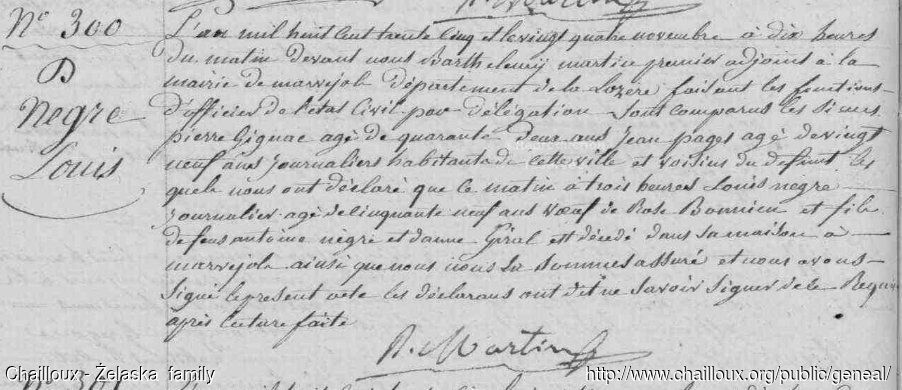 N° 300
D
Negre
Louis
L'an mil huit cent trente cinq et le vingt quatre novembre à dix heures
du matin devant nous Barthelemy martin premier adjoint à la
mairie de marvejols département de la Lozere faisant les fonctions
d'officier de l'etat Civil par délégation sont comparus les sieurs
pierre Gignac agé de quarante deux ans Jean pages agé de vingt
neuf ans journaliers habitants de cette ville et voisins du defunt les
quels nous ont déclaré que ce matin à trois heures Louis negre
journalier agé de cinquante neuf ans veuf de Rose Bonnieu et fils
de feus antoine nègre et d'anne Giral est décédé dans sa maison à
marvejols ainsi que nous nous en sommes assuré et nous avons
signé le present acte les déclarans ont dit ne savoir signer de ce Requis
après lecture faite
B. Martin
Chailloux - Żelaska family
http://www.chailloux.org/public/geneal/